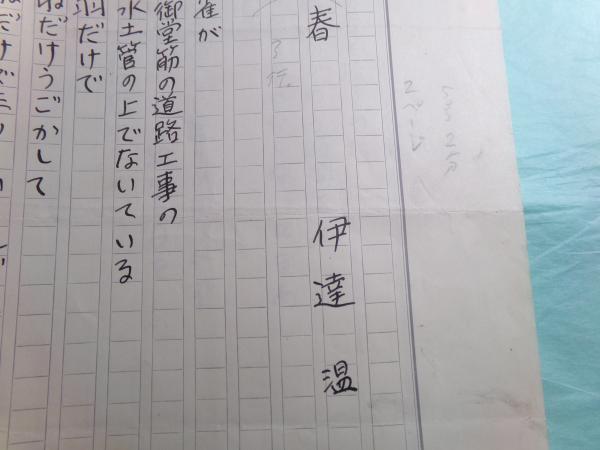 2ページ
春 伊達 温
3行
雀が
御堂筋の道路工事の
水土管の上でないている
羽だけで
だけうごかして